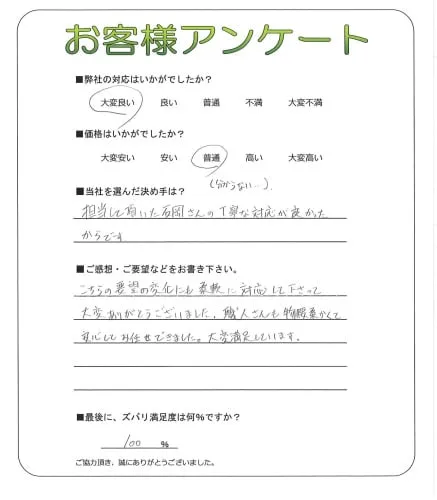 お客様アンケート
■弊社の対応はいかがでしたか？
大変良い 良い 普通 不満 大変不満
■価格はいかがでしたか？
大変安い 安い 普通 高い 大変高い
(分からない…).
■当社を選んだ決め手は？
担当して頂いた石岡さんの丁寧な対応が良かった
からです
■ご感想・ご要望などをお書き下さい。
こちらの要望の変化にも柔軟に対応して下さって
大変ありがとうございました。職人さんも物腰柔かくて
安心してお任せできました。大変満足しています。
■最後に、ズバリ満足度は何%ですか？
100 %
ご協力頂き、誠にありがとうございました。